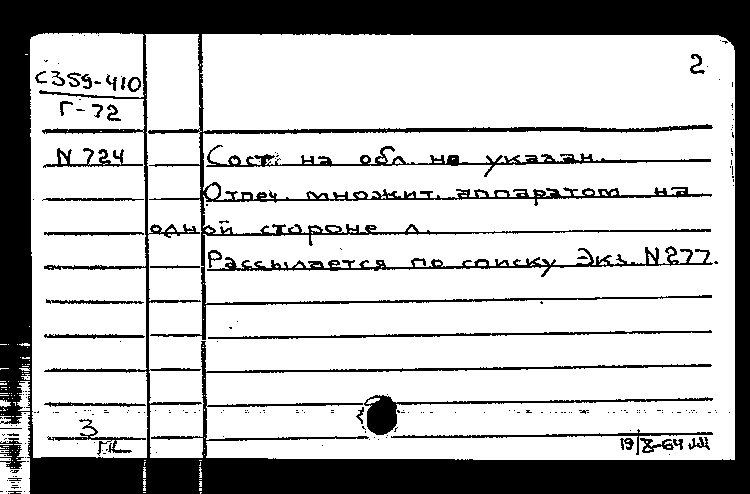 2
С359-410
Г-72
N 724 Сост. на обл. не указан.
Отпеч. множит. аппаратом на
одной стороне л.
Рассылается по списку Экз. N 277.
3
19/X-64